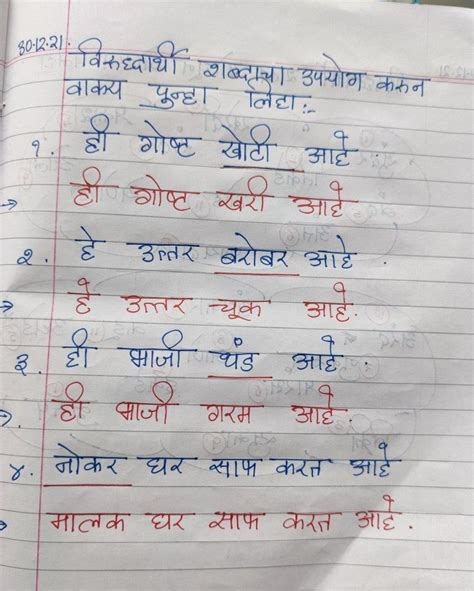 30.12.21.
विरुध्दार्थी शब्दाचा उपयोग करुन
वाक्य पुन्हा लिहा:-
१. ही गोष्ट खोटी आहे.
→ ही गोष्ट खरी आहे
२. हे उत्तर बरोबर आहे.
→ हे उत्तर चूक आहे.
३. ही भाजी थंड आहे.
→. ही भाजी गरम आहे.
४. नोकर घर साफ करत आहे
→ मालक घर साफ करत आहे.